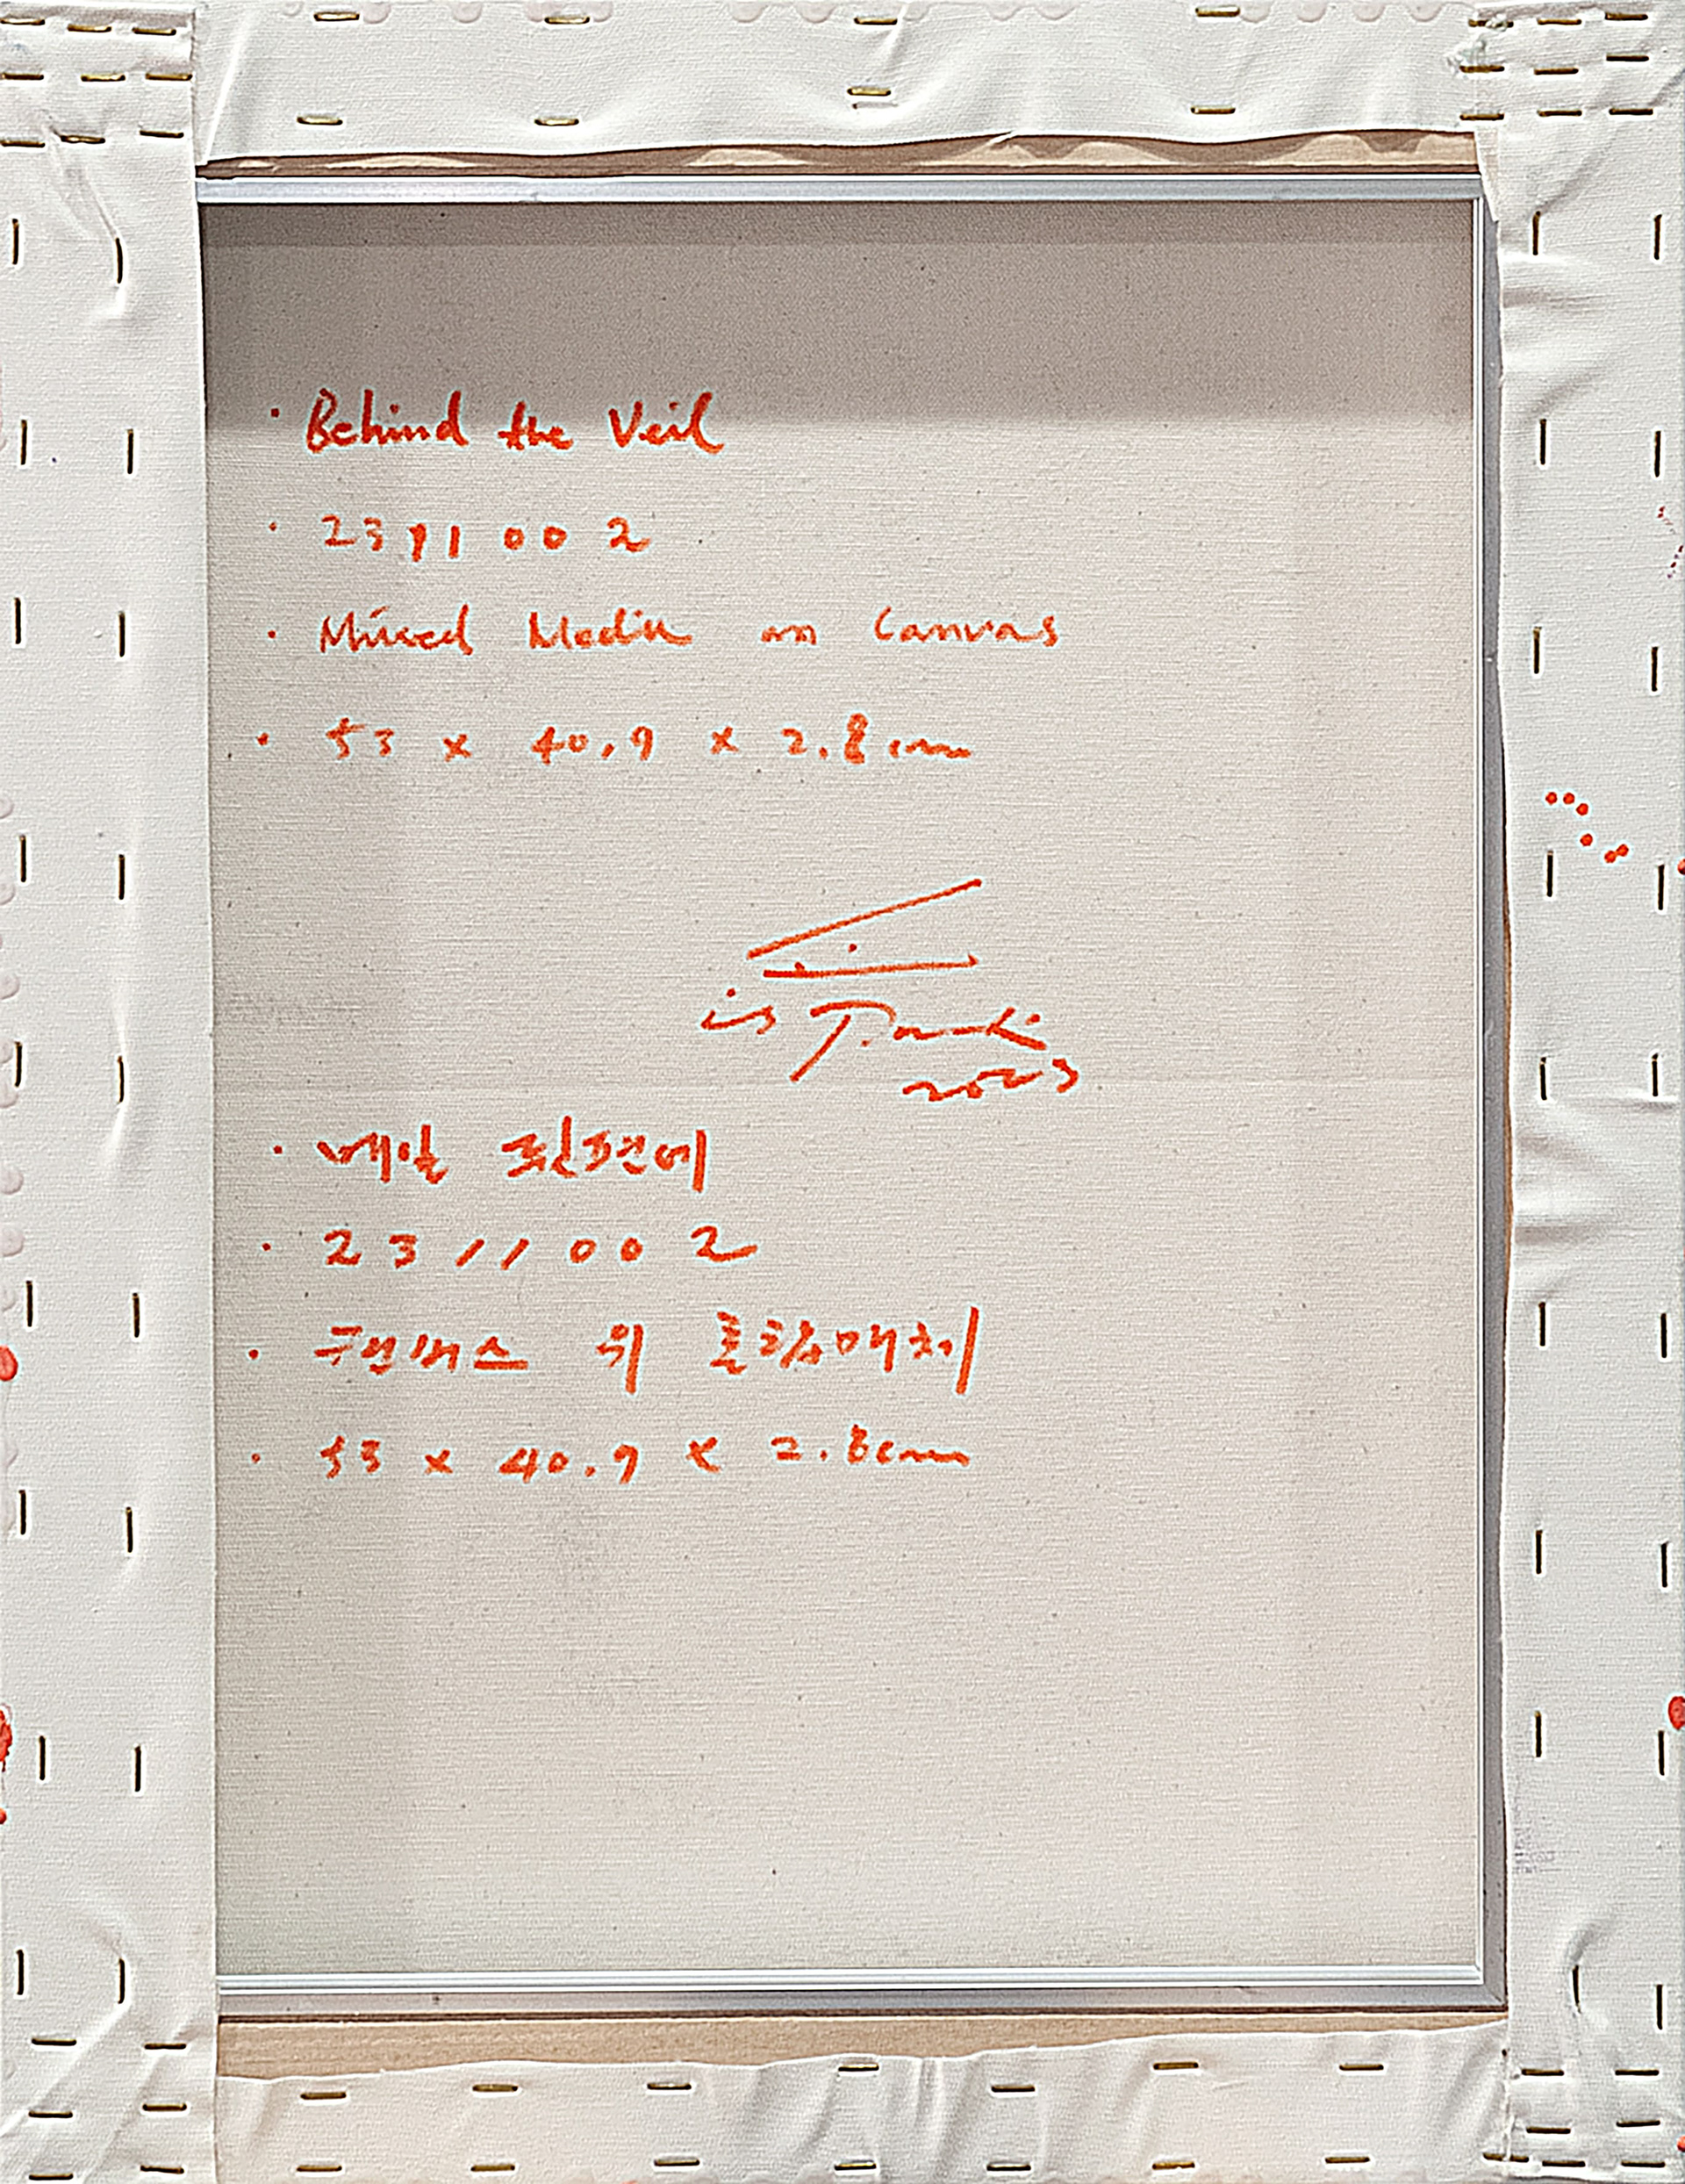 · Behind the Veil
· 2311002
· Mixed Media on Canvas
· 53 x 40.9 x 2.8cm
is Park
2023
· 베일 뒤편에
· 2311002
· 캔버스 위 혼합매체
· 53 x 40.9 x 2.8cm